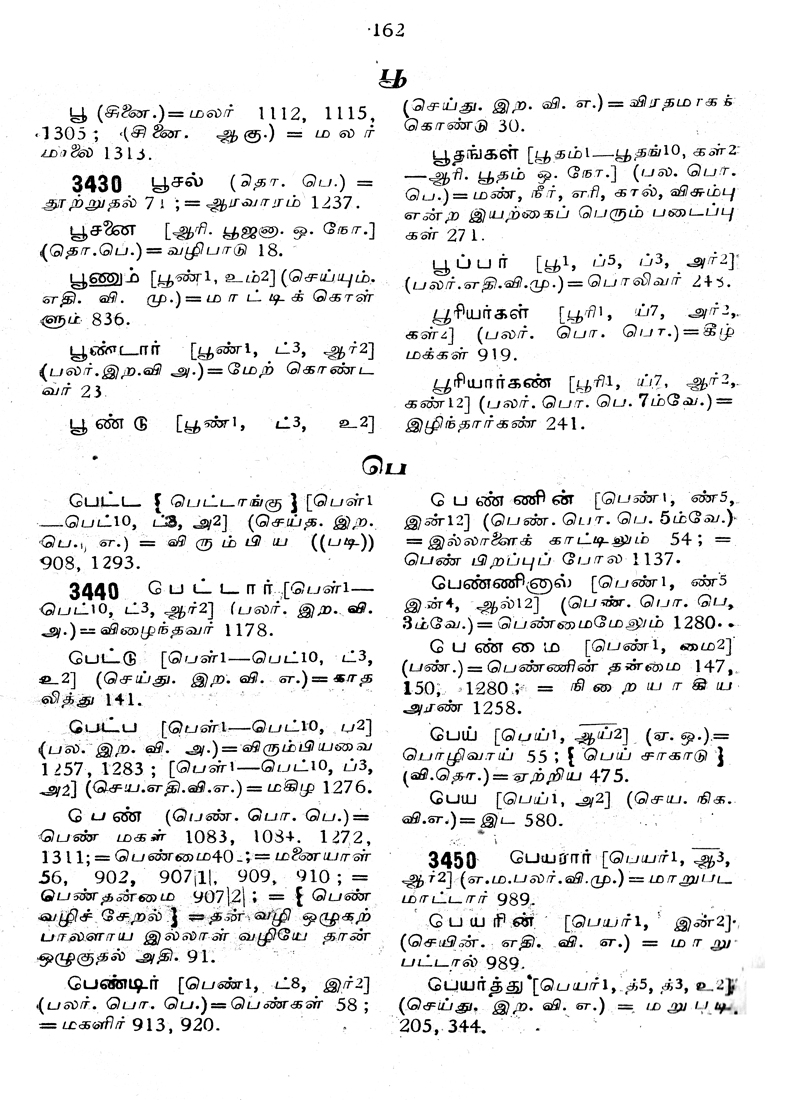 162
பூ
பூ (சினை.)=மலர் 1112, 1115,
1305; (சினை. ஆகு.) = மலர்
மாலை 1313.
3430 பூசல் (தொ. பெ.) =
தூற்றுதல் 71; =ஆரவாரம் 1237.
பூசனை [ஆரி. பூஜனா. ஒ. நோ.]
(தொ.பெ.)=வழிபாடு 18.
பூணும் [பூண்1, உம்2] (செய்யும்.
எதி. வி. மு.)=மாட்டிக் கொள்
ளும் 836.
பூண்டார் [பூண்1, ட்3, ஆர்2]
(பலர்.இற.வி அ.)=மேற் கொண்ட
வர் 23
பூண்டு [பூண்1, ட்3, உ2]
(செய்து. இற. வி. எ.)=விரதமாகக்
கொண்டு 30.
பூதங்கள் [பூதம்1—பூதங்10, கள்2
—ஆரி. பூதம் ஒ. நோ.] (பல. பொ.
பெ.)=மண், நீர், எரி, கால், விசும்பு
என்ற இயற்கைப் பெரும் படைப்பு
கள் 271.
பூப்பர் [பூ1, ப்5, ப்3, அர்2]
(பலர்.எதி.வி.மு.)=பொலிவர்
பூரியர்கள் [பூரி1, ய்7, அர்2,
கள்2] (பலர். பொ. பெ.)=கீழ்
மக்கள் 919.
பூரியார்கண் [பூரி1, ய்7, ஆர்2,
கண்12] (பலர். பொ. பெ. 7ம்வே.)=
இழிந்தார்கண் 241.
பெ
பெட்ட { பெட்டாங்கு } [பெள்1
—பெட்10, ட்3, அ2] (செய்த. இற.
பெ. எ.) = விரும்பிய ((படி))
908, 1293.
3440 பெட்டார் [பெள்1—
பெட்10, ட்3, ஆர்2] (பலர். இற. வி.
அ.)=விழைந்தவர் 1178.
பெட்டு [பெள்1—பெட்10, ட்3,
உ2] (செய்து. இற. வி. எ.)=காத
லித்து 141.
பெட்ப [பெள்1—பெட்10, ப2]
(பல. இற. வி. அ.)=விரும்பியவை
1257, 1283; [பெள்1—பெட்10, ப்3,
அ2] (செய.எதி.வி.எ.)=மகிழ 1276.
பெண் (பெண். பொ. பெ.)=
பெண் மகள் 1083, 1084. 1272,
1311;=பெண்மை =மனையாள்
56, 902, 907|1|, 909, 910; =
பெண்தன்மை 907|2|; = { பெண்
வழிச் சேறல் } =தன் வழி ஒழுகற்
பாலளாய இல்லாள் வழியே தான்
ஒழுகுதல் அதி. 91.
பெண்டிர் [பெண்1, ட்8, இர்2]
(பலர். பொ. பெ.)=பெண்கள் 58;
=மகளிர் 913, 920.
பெண்ணின் [பெண்1, ண்5,
இன்12] (பெண். பொ. பெ. 5ம்வே.)
=இல்லாளைக் காட்டிலும் 54; =
பெண் பிறப்புப் போல 1137.
பெண்ணினால் [பெண்1, ண்5
இன்4, ஆல்12] (பெண். பொ. பெ,
3ம்வே.)=பெண்மைமேலும் 1280.
பெண்மை [பெண்1, மை2]
(பண்.)=பெண்ணின் தன்மை 147,
150, 1280; = நிறையாகிய
அரண் 1258.
பெய் [பெய்1, ஆய்2] (ஏ. ஒ.)=
பொழிவாய் 55; { பெய் சாகாடு }
(வி.தொ.)=ஏற்றிய 475.
பெய [பெய்1, அ2] (செய. நிக.
வி.எ.)=இட 580.
3450 பெயரார் [பெயர்1, ஆ3,
ஆர்2] (எ.ம.பலர்.வி.மு.)=மாறுபட
மாட்டார் 989.
பெயரின் [பெயர்1, இன்2]
(செயின். எதி. வி. எ.) = மாறு
பட்டால் 989.
பெயர்த்து [பெயர்1, த்5, த்3, உ2]
(செய்து. இற. வி. எ.) = மறுபடி
205, 344.